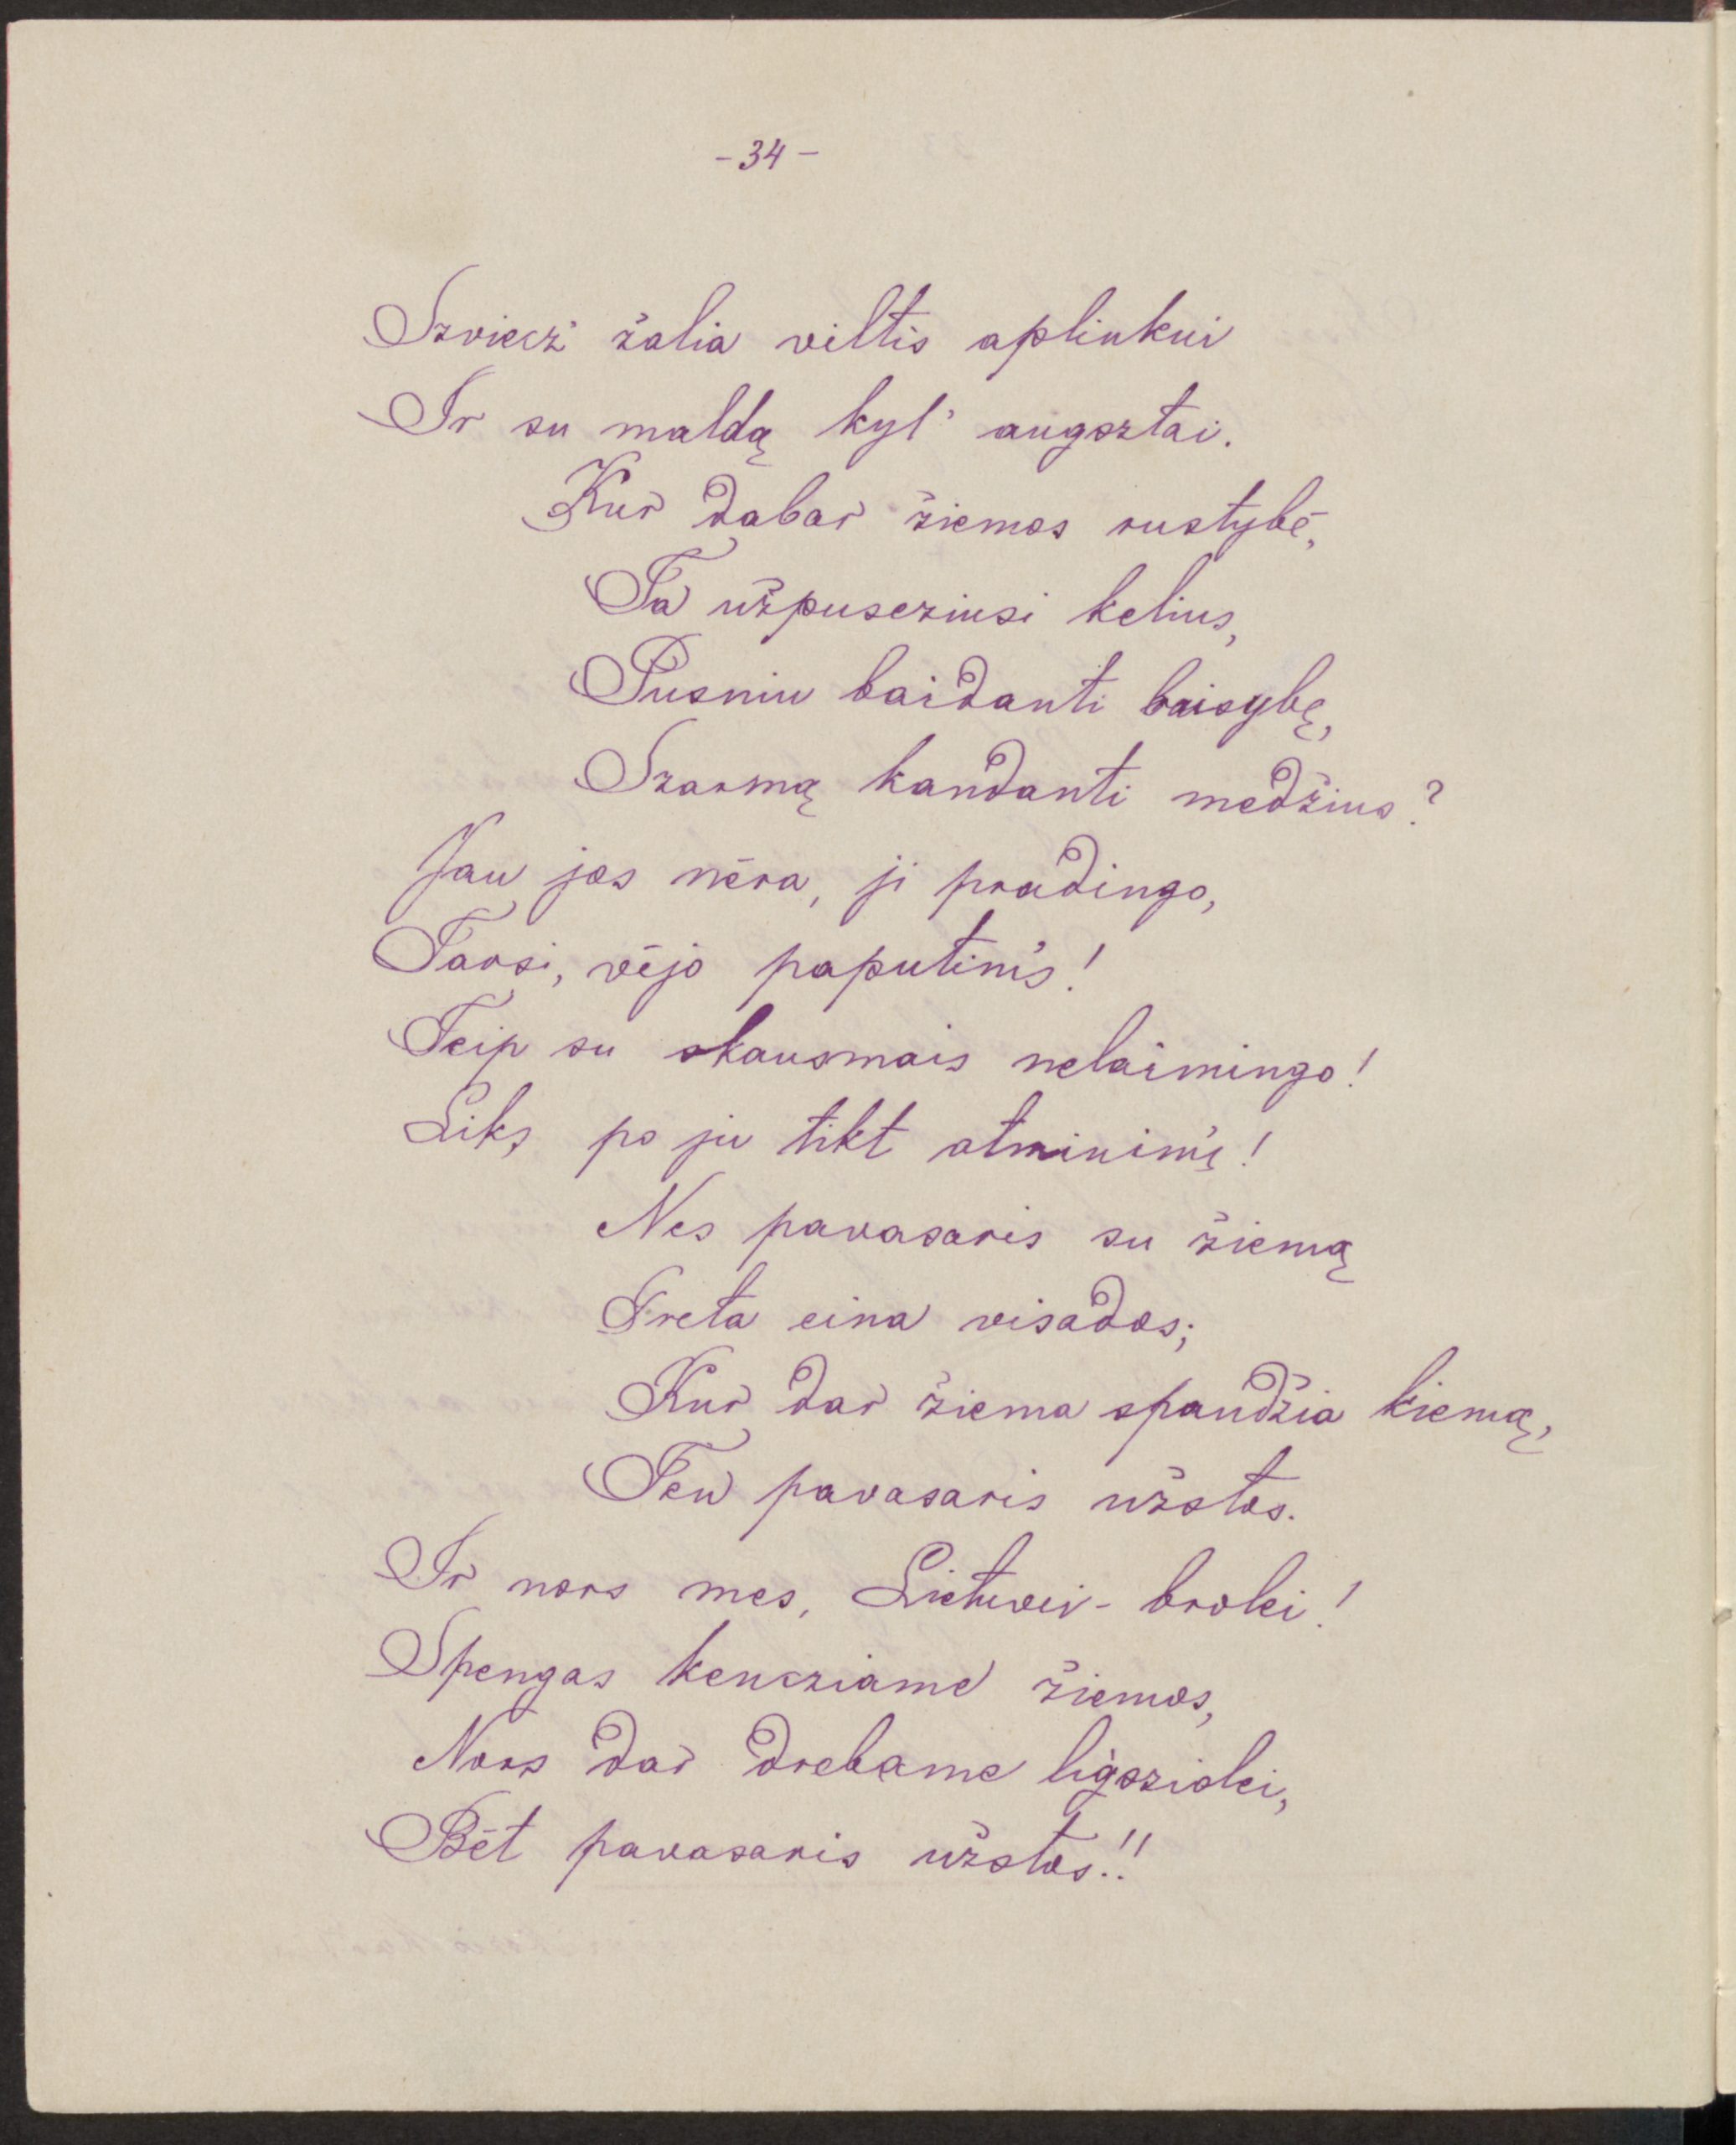 - 34 -
Szviecz' žalia viltis aplinkui
Ir su maldą kyl' augsztai.
Kur dabar žiemos rustybė,
Ta užpuscziusi kelius,
Pusniu baidanti baisybę,
Szarmą kandanti medžius?
Jau jos nėra, ji pradingo,
Tarsi, vėjo paputim's!
Teip su skausmais nelaimingo!
Liks po ju tikt atminim's!
Nes pavasaris su žiemą
Greta eina visados;
Kur dar žiema spaudžia kiemą,
Ten pavasaris užstos.
Ir nors mes, Lietuvei-brolei!
Spengas kencziame žiemos,
Nors dar drebame ligsziolei,
Bėt pavasaris užstos!!